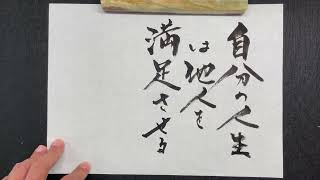 自分の人生
は他人を
満足させる